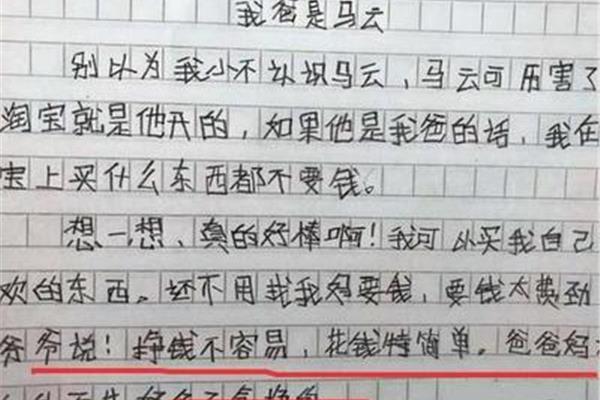 我爸是马云
别以为我小不认识马云，马云可厉害了
淘宝就是他开的，如果他是我爸的话，我在
宝上买什么东西都不要钱。
想一想，真的好棒啊！我可以买我自己
欢的东西。还不用找我妈要钱，要钱太费劲
爷爷说！挣钱不容易，花钱特简单。爸爸妈